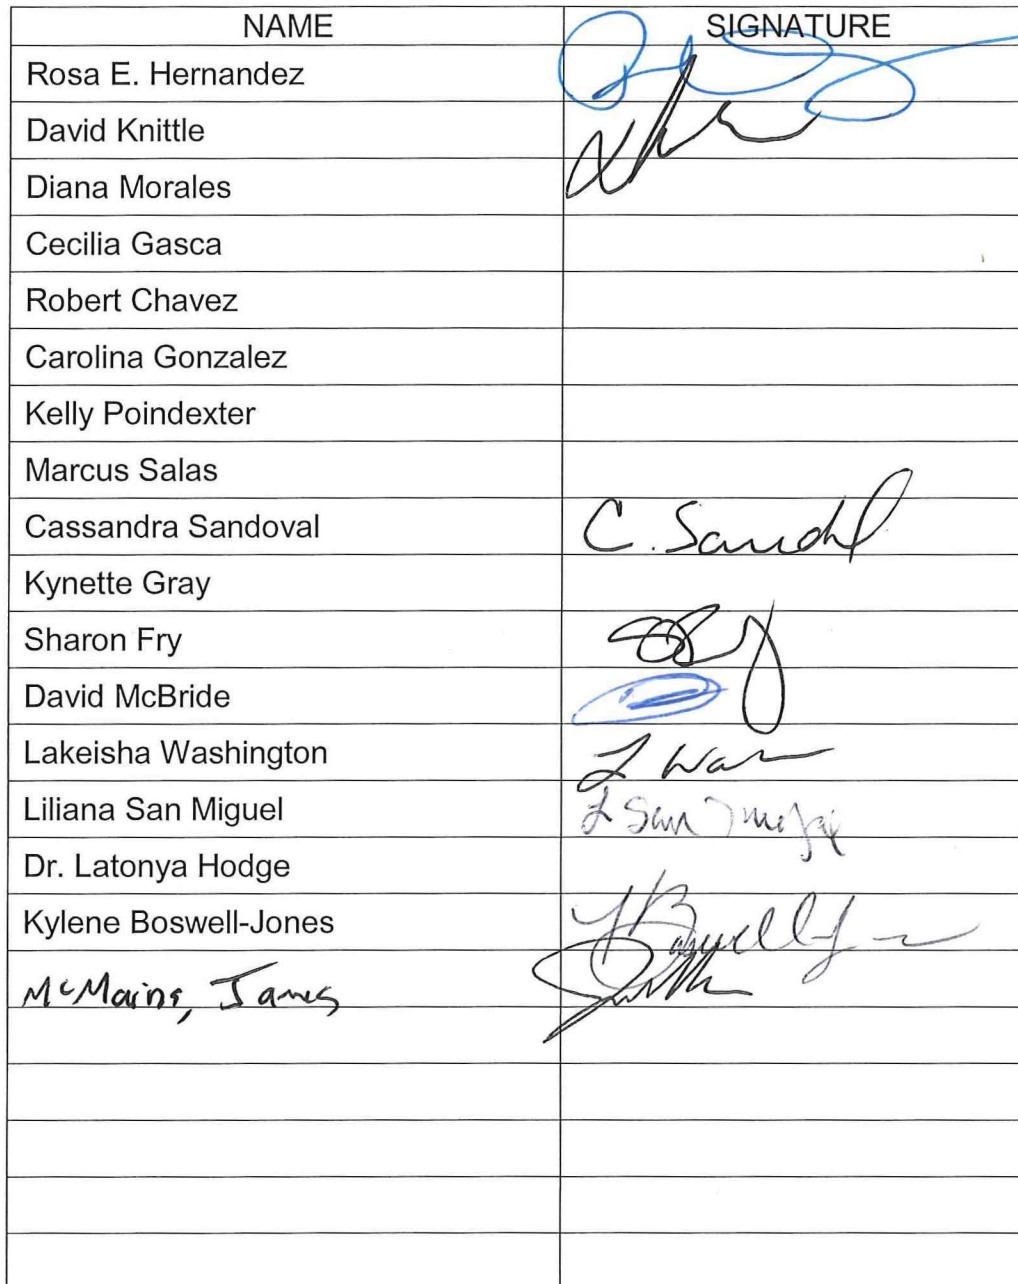 NAME SIGNATURE
Rosa E. Hernandez
David Knittle
Diana Morales
Cecilia Gasca
Robert Chavez
Carolina Gonzalez
Kelly Poindexter
Marcus Salas
Cassandra Sandoval C. Sandl
Kynette Gray
Sharon Fry
David McBride
Lakeisha Washington L Wa
Liliana San Miguel L San
Dr. Latonya Hodge
Kylene Boswell-Jones
McMains, James